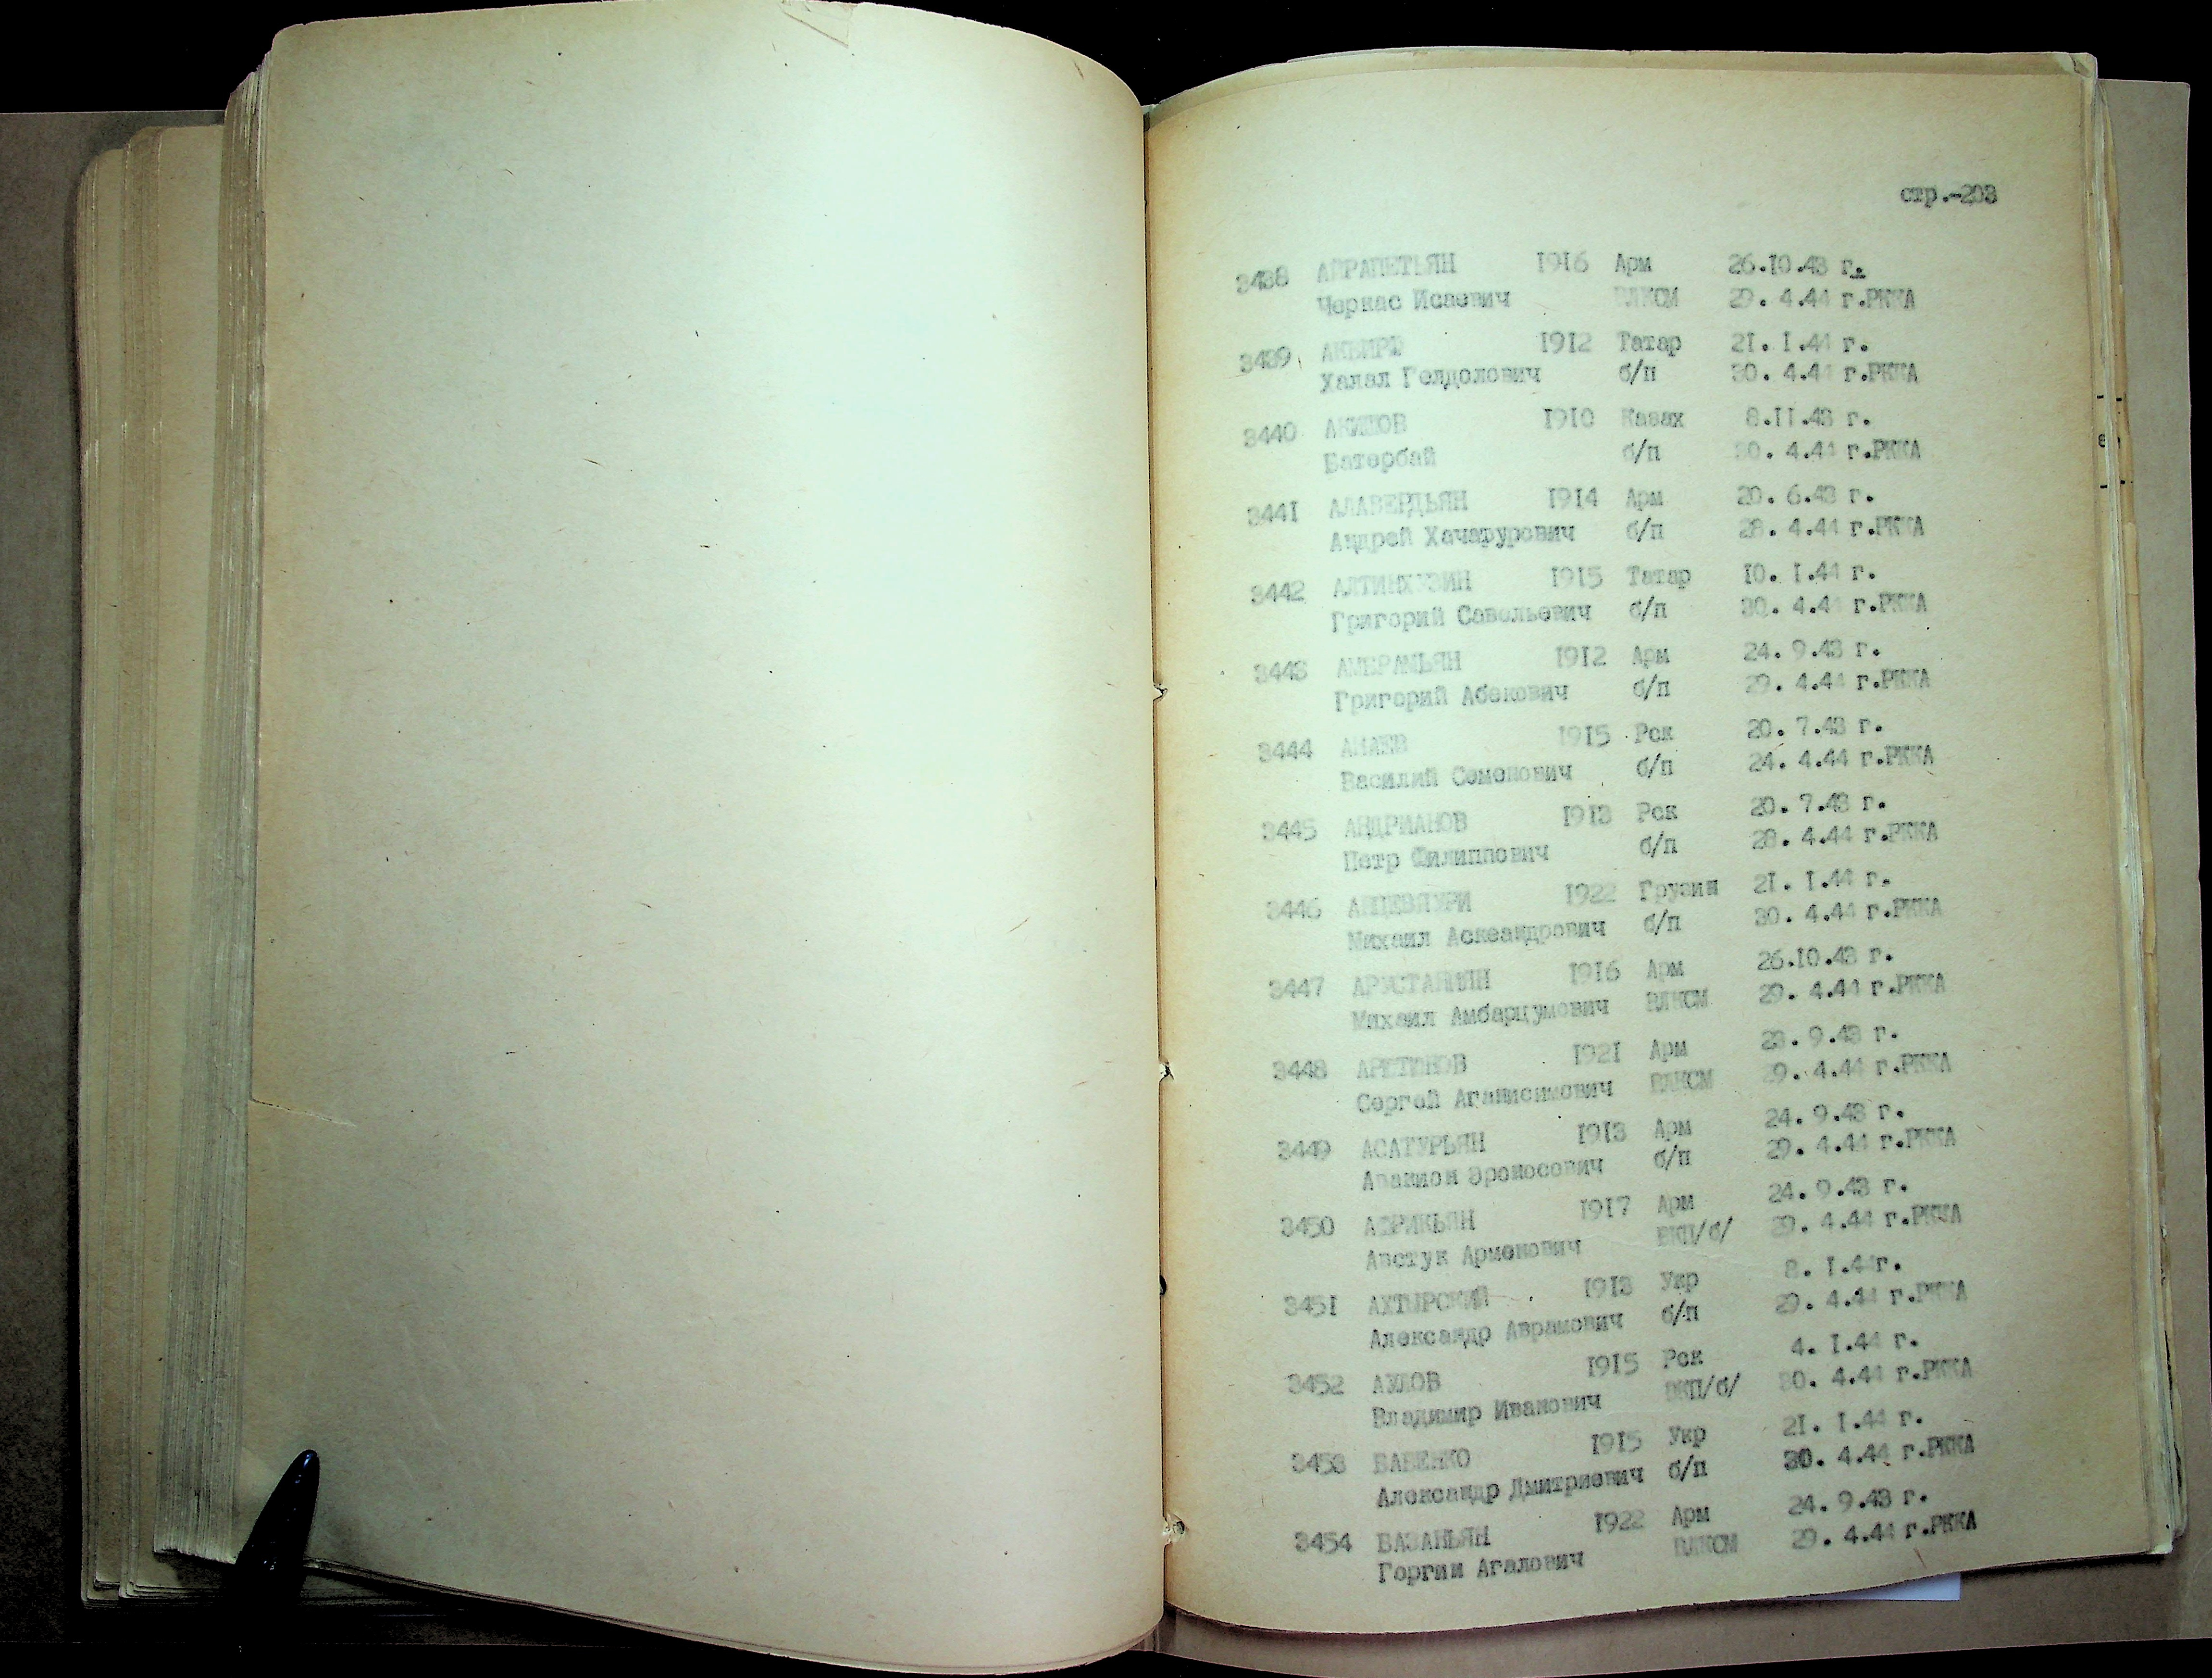 стр.-203
3438 АЙРАПЕТЬЯН 1916 Арм 26.10.43 г.
Черкас Исаевич ВЛКСМ 29. 4.44 г.РККА
3439 1912 Татар 21. 1.44 г.
Халал Гелдолович б/п 30. 4.44 г.РККА
3440 АКИШОВ 1910 Казах 8.11.43 г.
Батербай б/п 30. 4.44 г.РККА
3441 АЛАВЕРДЬЯН 1914 Арм 20. 6.43 г.
Андрей Хачарурович б/п 28. 4.44 г.РККА
3442 АЛТИНХУЗИН 1915 Татар 10. 1.44 г.
Григорий Савельевич б/п 30. 4.44 г.РККА
3443 АМБРАМЬЯН 1912 Арм 24. 9.43 г.
Григорий Абекович б/п 29. 4.44 г.РККА
3444 АНАЕВ 1915 Рск 20. 7.43 г.
Василий Семенович б/п 24. 4.44 г.РККА
3445 АНДРИАНОВ 1913 Рск 20. 7.43 г.
Петр Филиппович б/п 28. 4.44 г.РККА
3446 1922 Грузин 21. 1.44 г.
Михаил Аскеандрович б/п 30. 4.44 г.РККА
3447 1916 Арм 26.10.43 г.
Михаил Амбарцумович ВЛКСМ 29. 4.44 г.РККА
3448 1921 Арм 23. 9.43 г.
Сергей Аганисимович ВЛКСМ 29. 4.44 г.РККА
3449 АСАТУРЬЯН 1913 Арм 24. 9.43 г.
Авакион Эроносович б/п 29. 4.44 г.РККА
3450 АФРИКЬЯН 1917 Арм 24. 9.43 г.
Австук Арменович ВКП/б/ 29. 4.44 г.РККА
3451 АХТЫРСКИЙ 1913 Укр 8. 1.44г.
Александр Аврамович б/п 29. 4.44 г.РККА
3452 1915 Рск 4. 1.44 г.
Владимир Иванович ВКП/б/ 30. 4.44 г.РККА
3453 БАБЕНКО 1915 Укр 21. 1.44 г.
Александр Дмитриевич б/п 30. 4.44 г.РККА
3454 БАЗАНЬЯН 1922 Арм 24. 9.43 г.
Горгии Агалович ВЛКСМ 29. 4.44 г.РККА